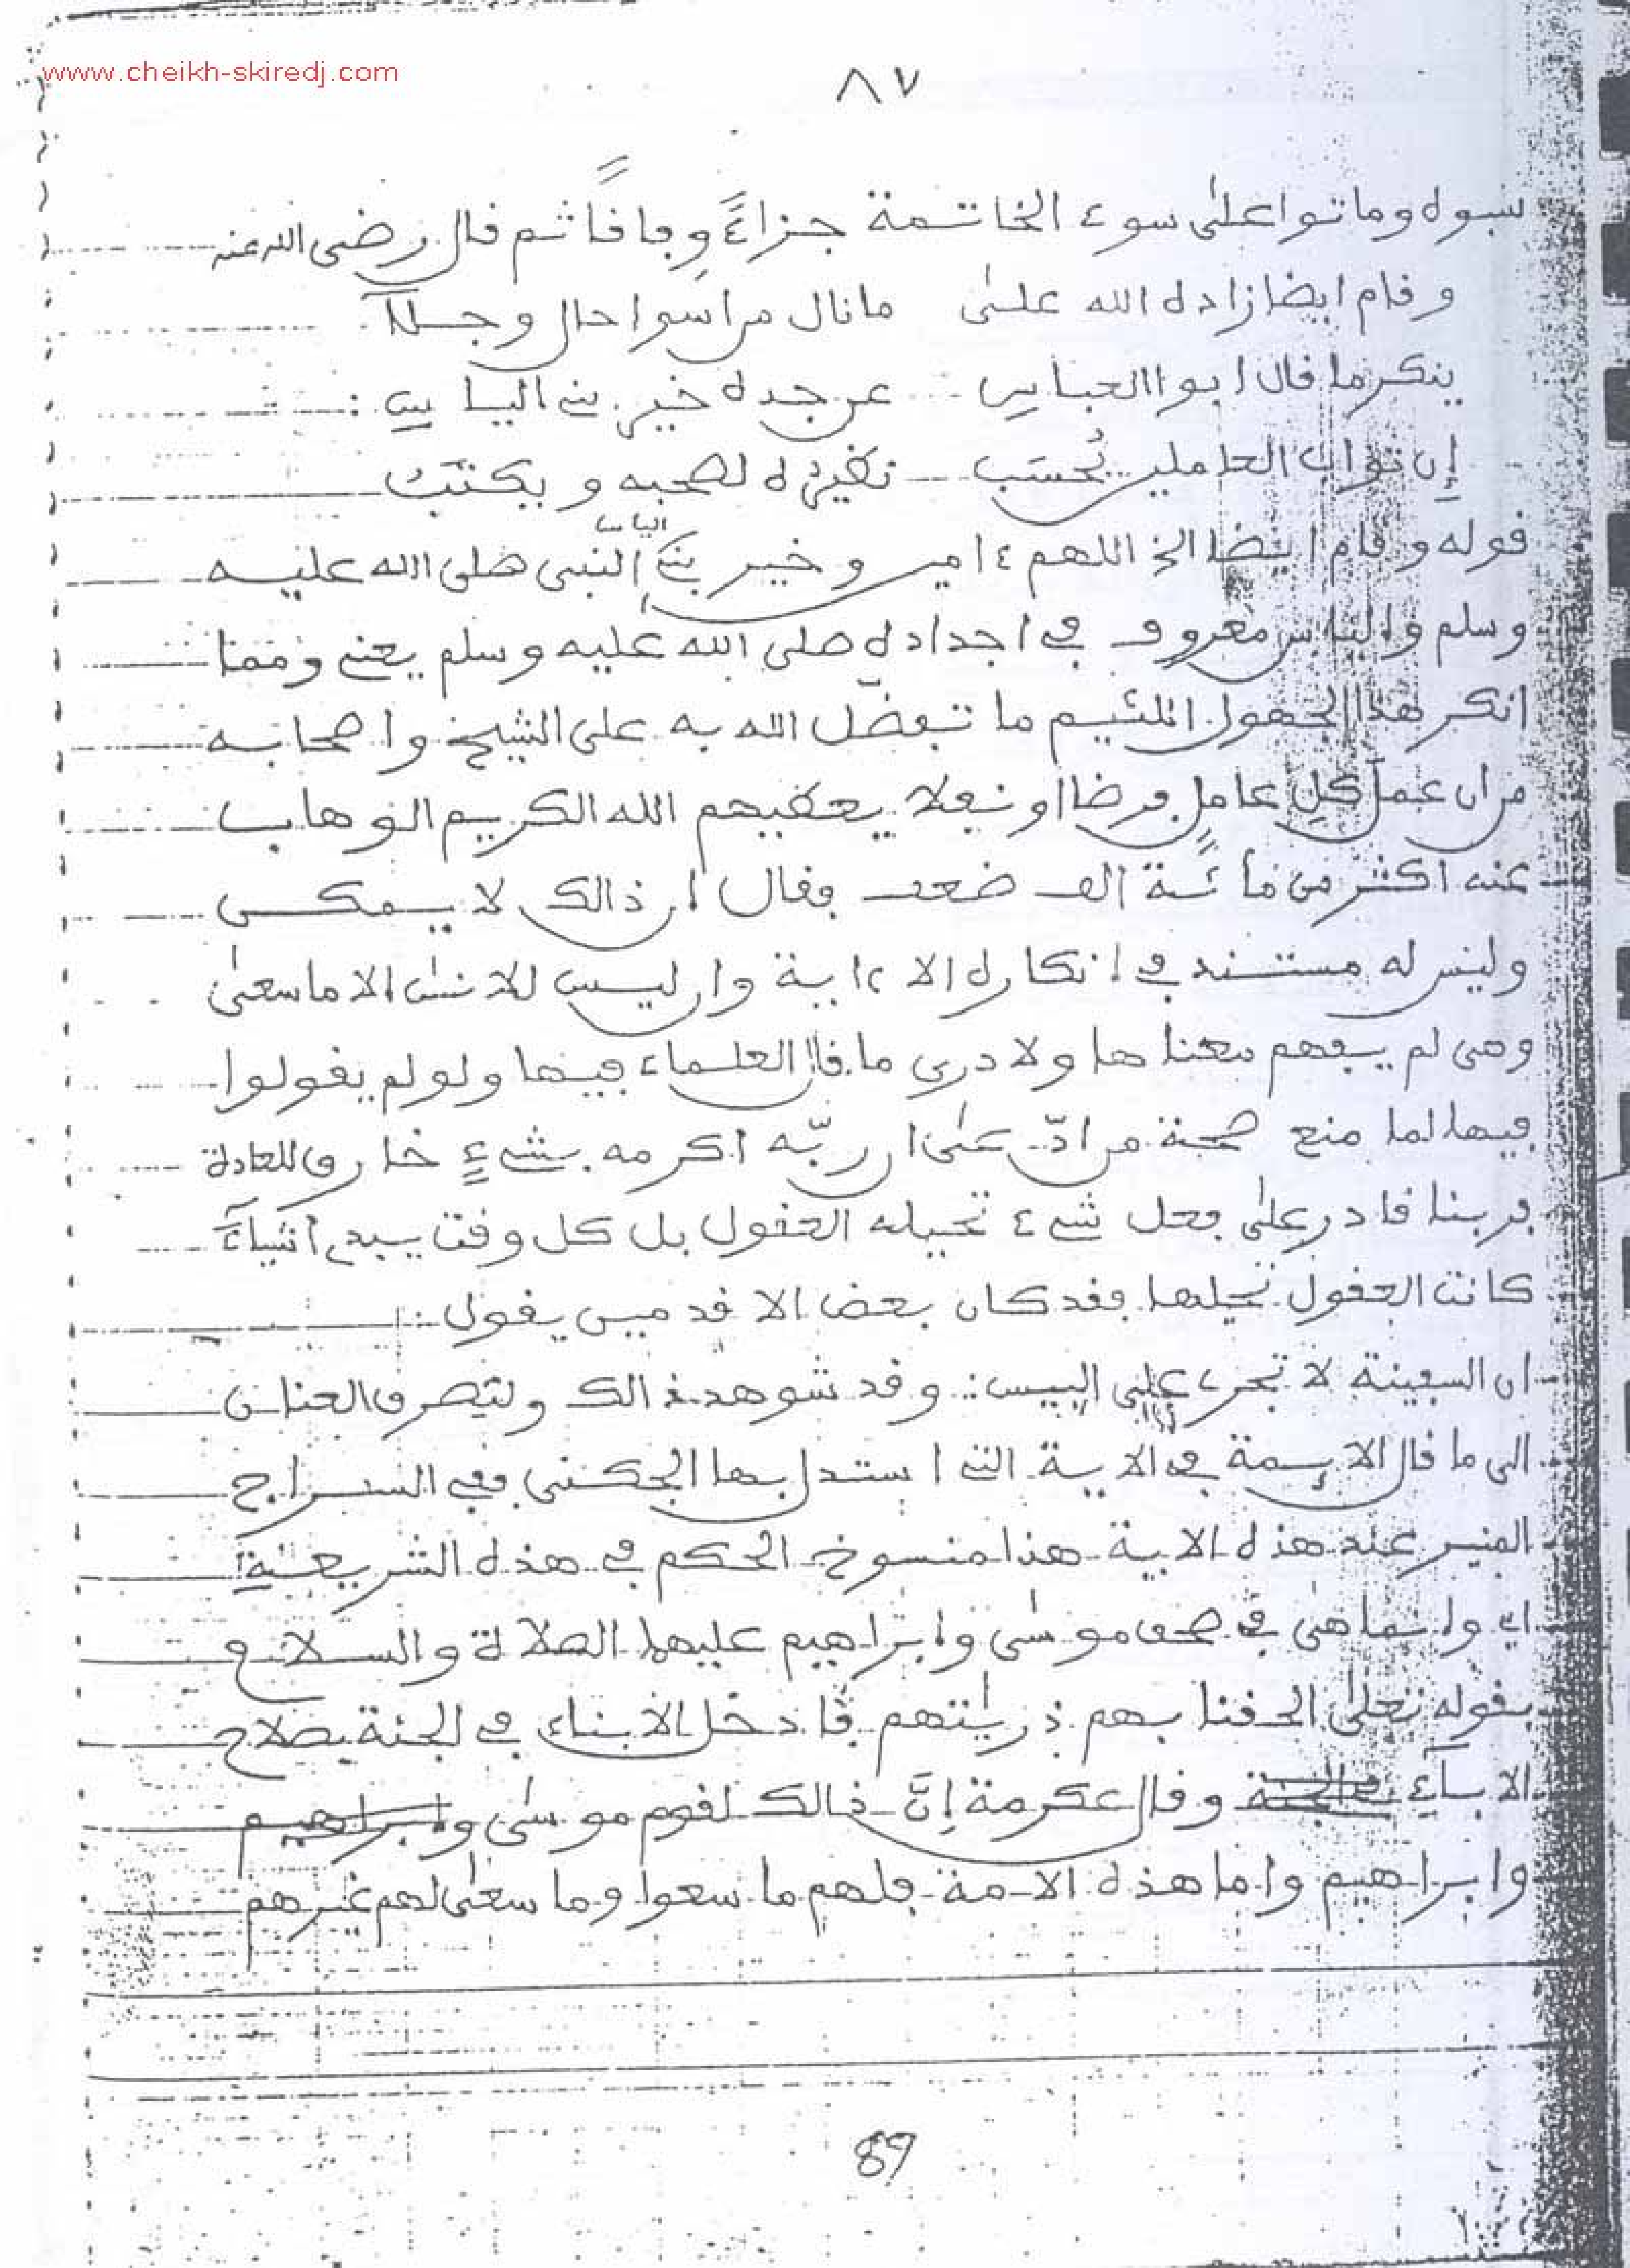 www.cheikh-skiredj.com
٨٧
سبوه وماتوا على سوء الخاتمة جزاءً وفاقاً ثم قال رضى الله عنه
وقام ايضا زاده الله على مانال من اسوا حال وجلا
ينكر ما قال ابوا العباس عن جده خير بنى الياس :
إن ثواب العاملين يُحسَب لصحبه ويكتب
قوله وقام ايضا الخ اللهم ءامين وخير بنى الياس النبى صلى الله عليه
وسلم والياس معروف فى اجداده صلى الله عليه وسلم يعنى ومما
انكر هذا الجهول اللئيم ما تفضّل الله به على الشيخ واصحابه
من ان عمل كلِ عاملٍ فرضا او نفلا يعطيهم الله الكريم الوهاب
عنه اكثر من مائة الف ضعف فقال ان ذالك لا يمكن
وليس له مستند فى انكاره الا ءاية وان ليس للانسٰن الا ما سعىٰ
وهى لم يفهم معناها ولا درى ما قال العلماء فيها ولو لم يقولوا
فيها لما منع صحة من ادّعىٰ ان ربّه اكرمه بشىءٍ خارق للعادة
فربنا قادر علىٰ فعل شىء تحيله العقول بل كل وقت يبدى أشياءً
كانت العقول تحيلها فقد كان بعض الاقدمين يقول :
ان السفينة لا تجرى على اليبس : وقد شوهد ذالك ولنصرف العنان
الى ما قال الايمة فى الاية التى استدل بها الجكنى ففى السراج
المنير عند هذه الاية هذا منسوخ الحكم فى هذه الشريعة
اى وانما هى فى صحف موسىٰ وابراهيم عليهما الصلاة والسلام
بقوله تعلىٰ الحقنا بهم ذريٰتهم فادخل الابناء فى الجنة بصلاح
الاباء وقال عكرمة إنَّ ذالك لقوم موسىٰ وابراهيم
وابراهيم واما هذه الامة فلهم ما سعوا وما سعىٰ لهم غيرهم
89